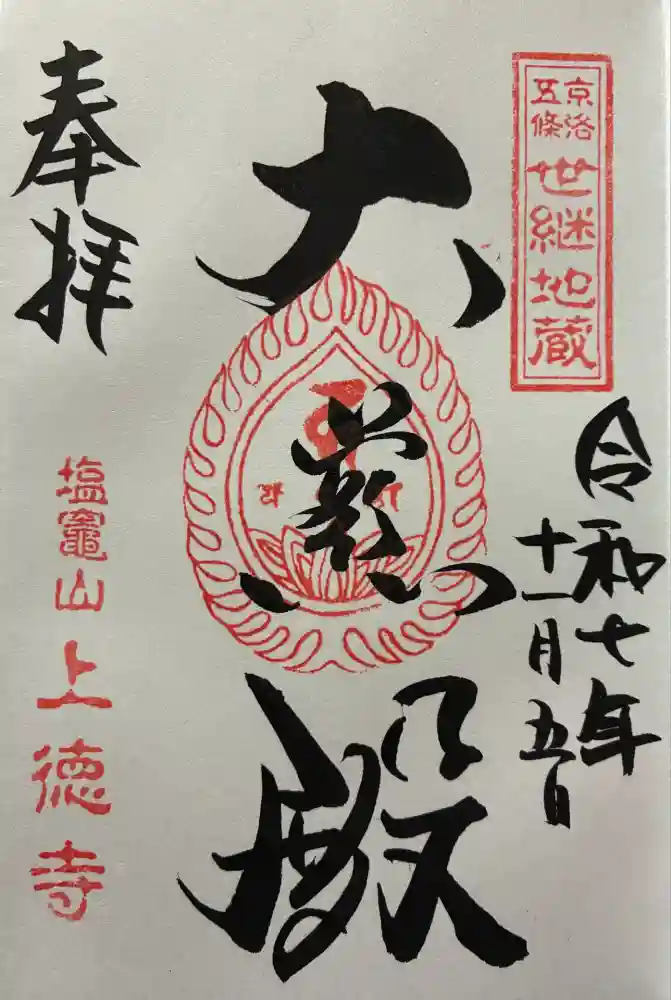 京洛
五條
世継地蔵
令和七年
十一月五日
大慈殿
奉拝
塩竈山
上徳寺